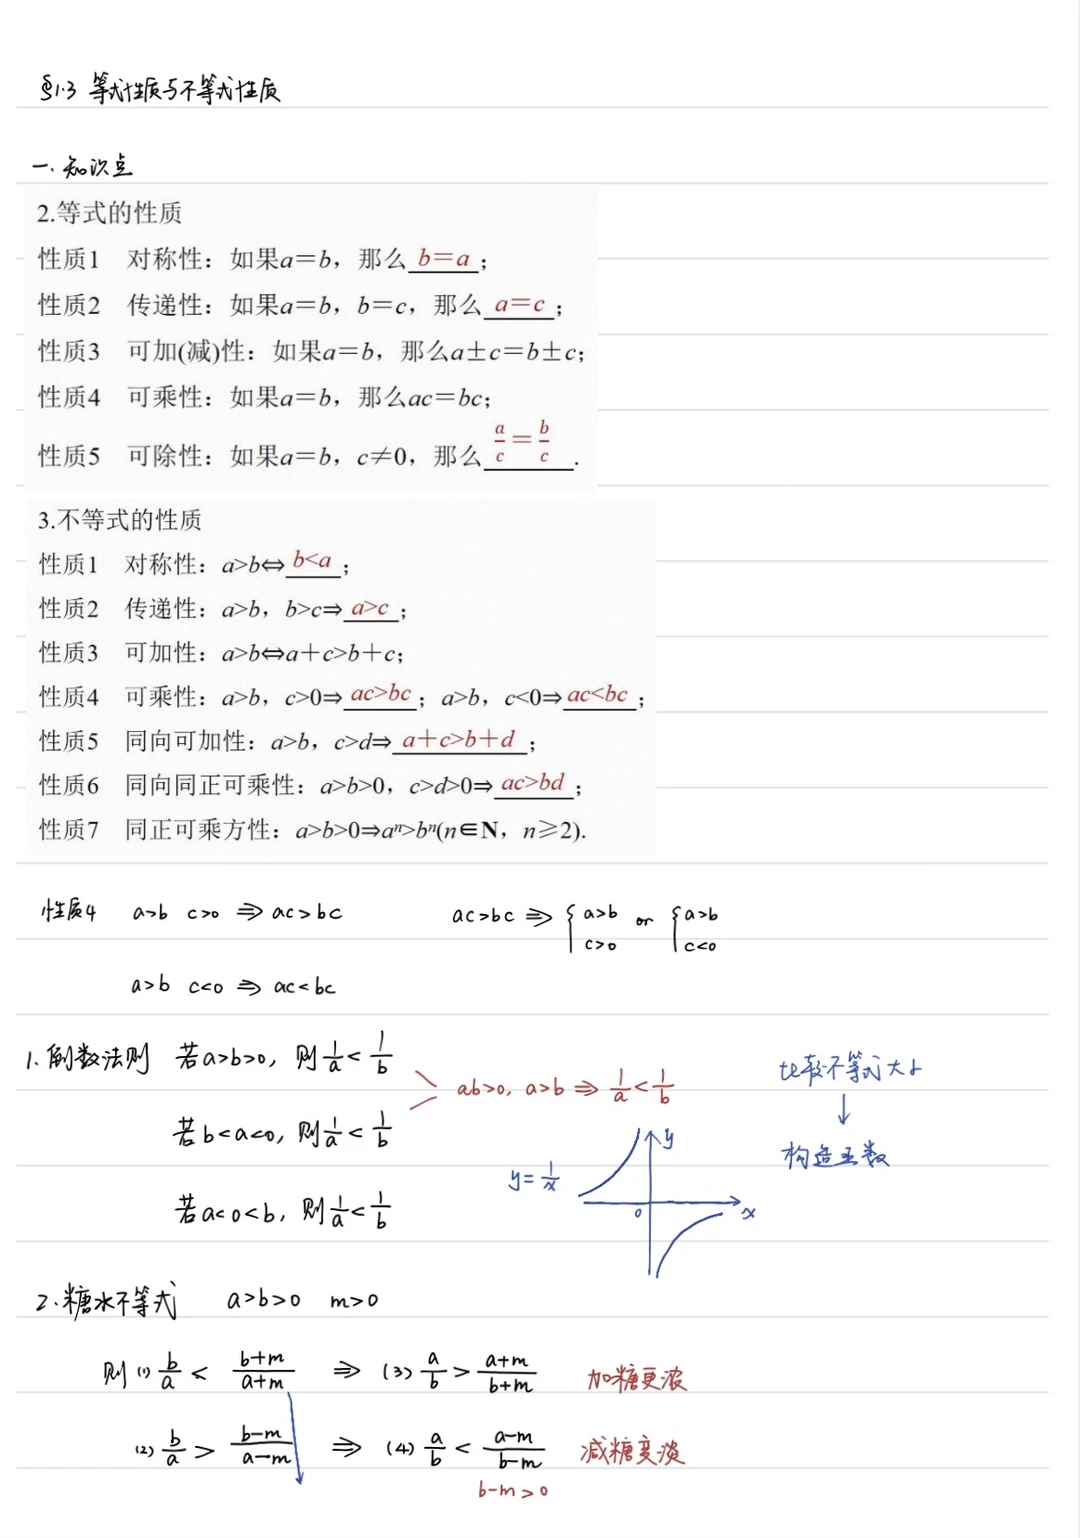 §1.3 等式性质与不等式性质
一.知识点
2.等式的性质
性质1 对称性：如果a＝b，那么b＝a；
性质2 传递性：如果a＝b，b＝c，那么a＝c；
性质3 可加(减)性：如果a＝b，那么a±c＝b±c；
性质4 可乘性：如果a＝b，那么ac＝bc；
性质5 可除性：如果a＝b，c≠0，那么a/c＝b/c.
3.不等式的性质
性质1 对称性：a>b⇔b<a；
性质2 传递性：a>b，b>c⇒a>c；
性质3 可加性：a>b⇔a＋c>b＋c；
性质4 可乘性：a>b，c>0⇒ac>bc；a>b，c<0⇒ac<bc；
性质5 同向可加性：a>b，c>d⇒a＋c>b＋d；
性质6 同向同正可乘性：a>b>0，c>d>0⇒ac>bd；
性质7 同正可乘方性：a>b>0⇒aⁿ>bⁿ(n∈N，n≥2).
性质4 a>b c>0 ⇒ ac>bc ac>bc ⇒ { a>b c>0 or { a>b c<0
a>b c<0 ⇒ ac<bc
1.倒数法则 若a>b>0, 则1/a<1/b
ab>0, a>b ⇒ 1/a<1/b
若b<a<0, 则1/a<1/b
若a<0<b, 则1/a<1/b
比较不等式大小
↓
构造函数
y=1/x
y
0
x
2.糖水不等式 a>b>0 m>0
则(1) b/a < (b+m)/(a+m) ⇒ (3) a/b > (a+m)/(b+m) 加糖更浓
(2) b/a > (b-m)/(a-m) ⇒ (4) a/b < (a-m)/(b-m) 减糖变淡
b-m>0